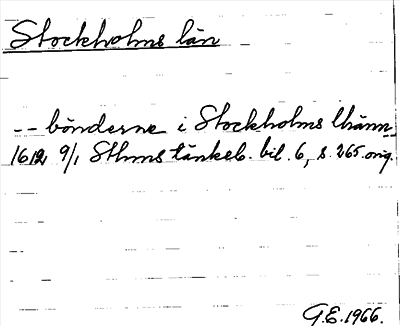 Stockholms län
-- bönderne i Stockholms lhänn
1612 9/1 Sthms tänkeb. bil. 6, s. 265. orig.
G.E. 1966.